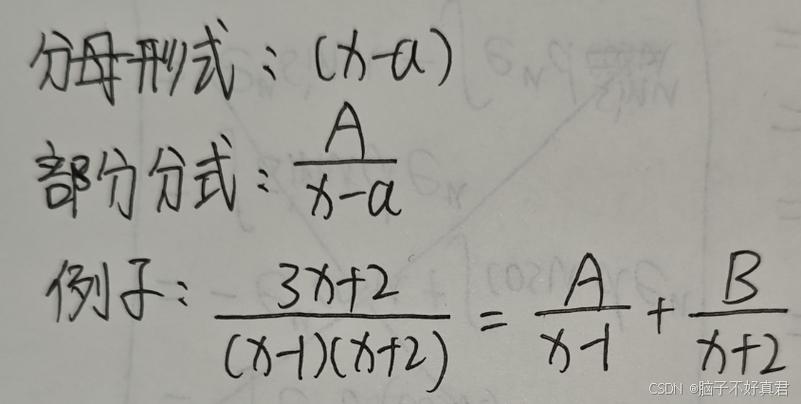 分母形式：(x-a)
部分分式：A/(x-a)
例子：(3x+2)/((x-1)(x+2)) = A/(x-1) + B/(x+2)
CSDN @脑子不好真君